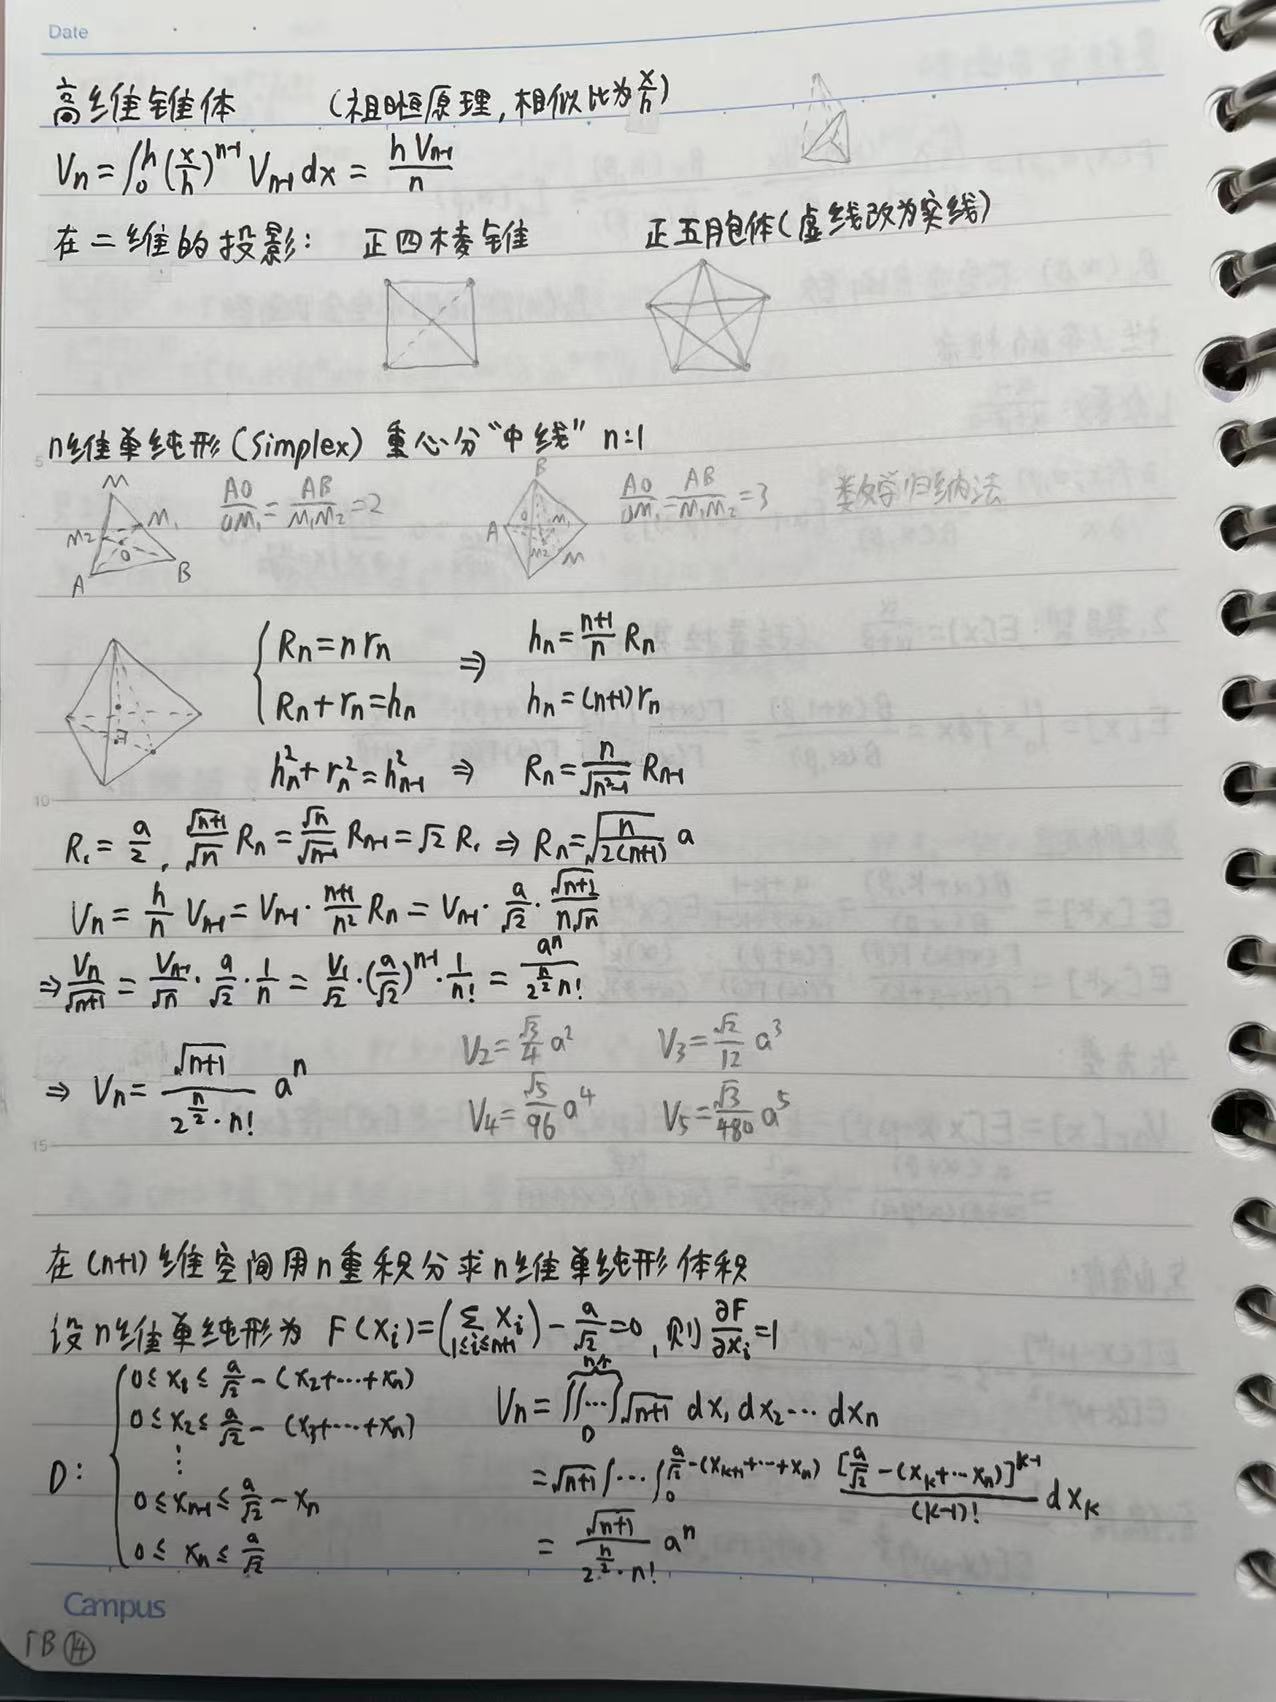 Date
高维锥体 (祖暅原理,相似比为x/h)
Vn = ∫₀ʰ (x/h)ⁿ⁻¹ Vn-1 dx = hVn-1/n
在二维的投影: 正四棱锥 正五胞体(虚线改为实线)
n维单纯形(Simplex) 重心分“中线” n:1
M M1 M2 O A B AO/OM1 = AB/M1M2 = 2 B A O M1 M2 M AO/OM1 = AB/M1M2 = 3 数学归纳法
{ Rn = n rn ⇒ hn = (n+1)/n Rn
Rn + rn = hn hn = (n+1)rn
hn² + rn² = hn-1² ⇒ Rn = n/√(n²-1) Rn-1
R1 = a/2, √(n+1)/√n Rn = √n/√(n-1) Rn-1 = √2 R1 ⇒ Rn = √(n/(2(n+1))) a
Vn = h/n Vn-1 = Vn-1 · (n+1)/n² Rn = Vn-1 · a/√2 · √(n+1)/(n√n)
⇒ Vn/√(n+1) = Vn-1/√n · a/√2 · 1/n = V1/√2 · (a/√2)ⁿ⁻¹ · 1/n! = aⁿ/(2^(n/2) n!)
⇒ Vn = √(n+1)/(2^(n/2) · n!) aⁿ V2 = √3/4 a² V3 = √2/12 a³
V4 = √5/96 a⁴ V5 = √3/480 a⁵
在(n+1)维空间用n重积分求n维单纯形体积
设n维单纯形为 F(xi) = (∑1≤i≤n+1 xi) - a/√2 = 0, 则 ∂F/∂xi = 1
D: { 0 ≤ x1 ≤ a/√2 - (x2+⋯+xn)
0 ≤ x2 ≤ a/√2 - (x3+⋯+xn)
⋮
0 ≤ xn-1 ≤ a/√2 - xn
0 ≤ xn ≤ a/√2
Vn = ∬⋯∫D √(n+1) dx1 dx2⋯ dxn
= √(n+1) ∫⋯∫₀^(a/√2-(xk+1+⋯+xn)) [a/√2-(xk+⋯xn)]^(k-1)/(k-1)! dxk
= √(n+1)/(2^(n/2) · n!) aⁿ
5
10
15
Campus
ГB ⑭